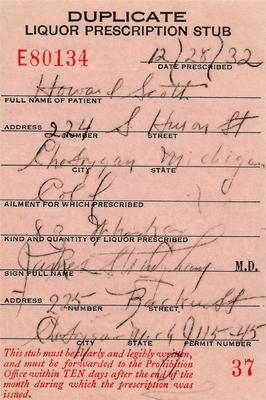 DUPLICATE
LIQUOR PRESCRIPTION STUB
E80134 12/28/32
DATE PRESCRIBED
Howard Scott
FULL NAME OF PATIENT
224 S Huron St
ADDRESS NUMBER STREET
Cheboygan Michigan
CITY STATE
Cold
AILMENT FOR WHICH PRESCRIBED
KIND AND QUANTITY OF LIQUOR PRESCRIBED
James
SIGN FULL NAME M.D.
225 Backus St
ADDRESS NUMBER STREET
Cheboygan Mich
CITY STATE PERMIT NUMBER
This stub must be clearly and legibly written,
and must be forwarded to the Prohibition
Office within TEN days after the end of the
month during which the prescription was
issued.
37